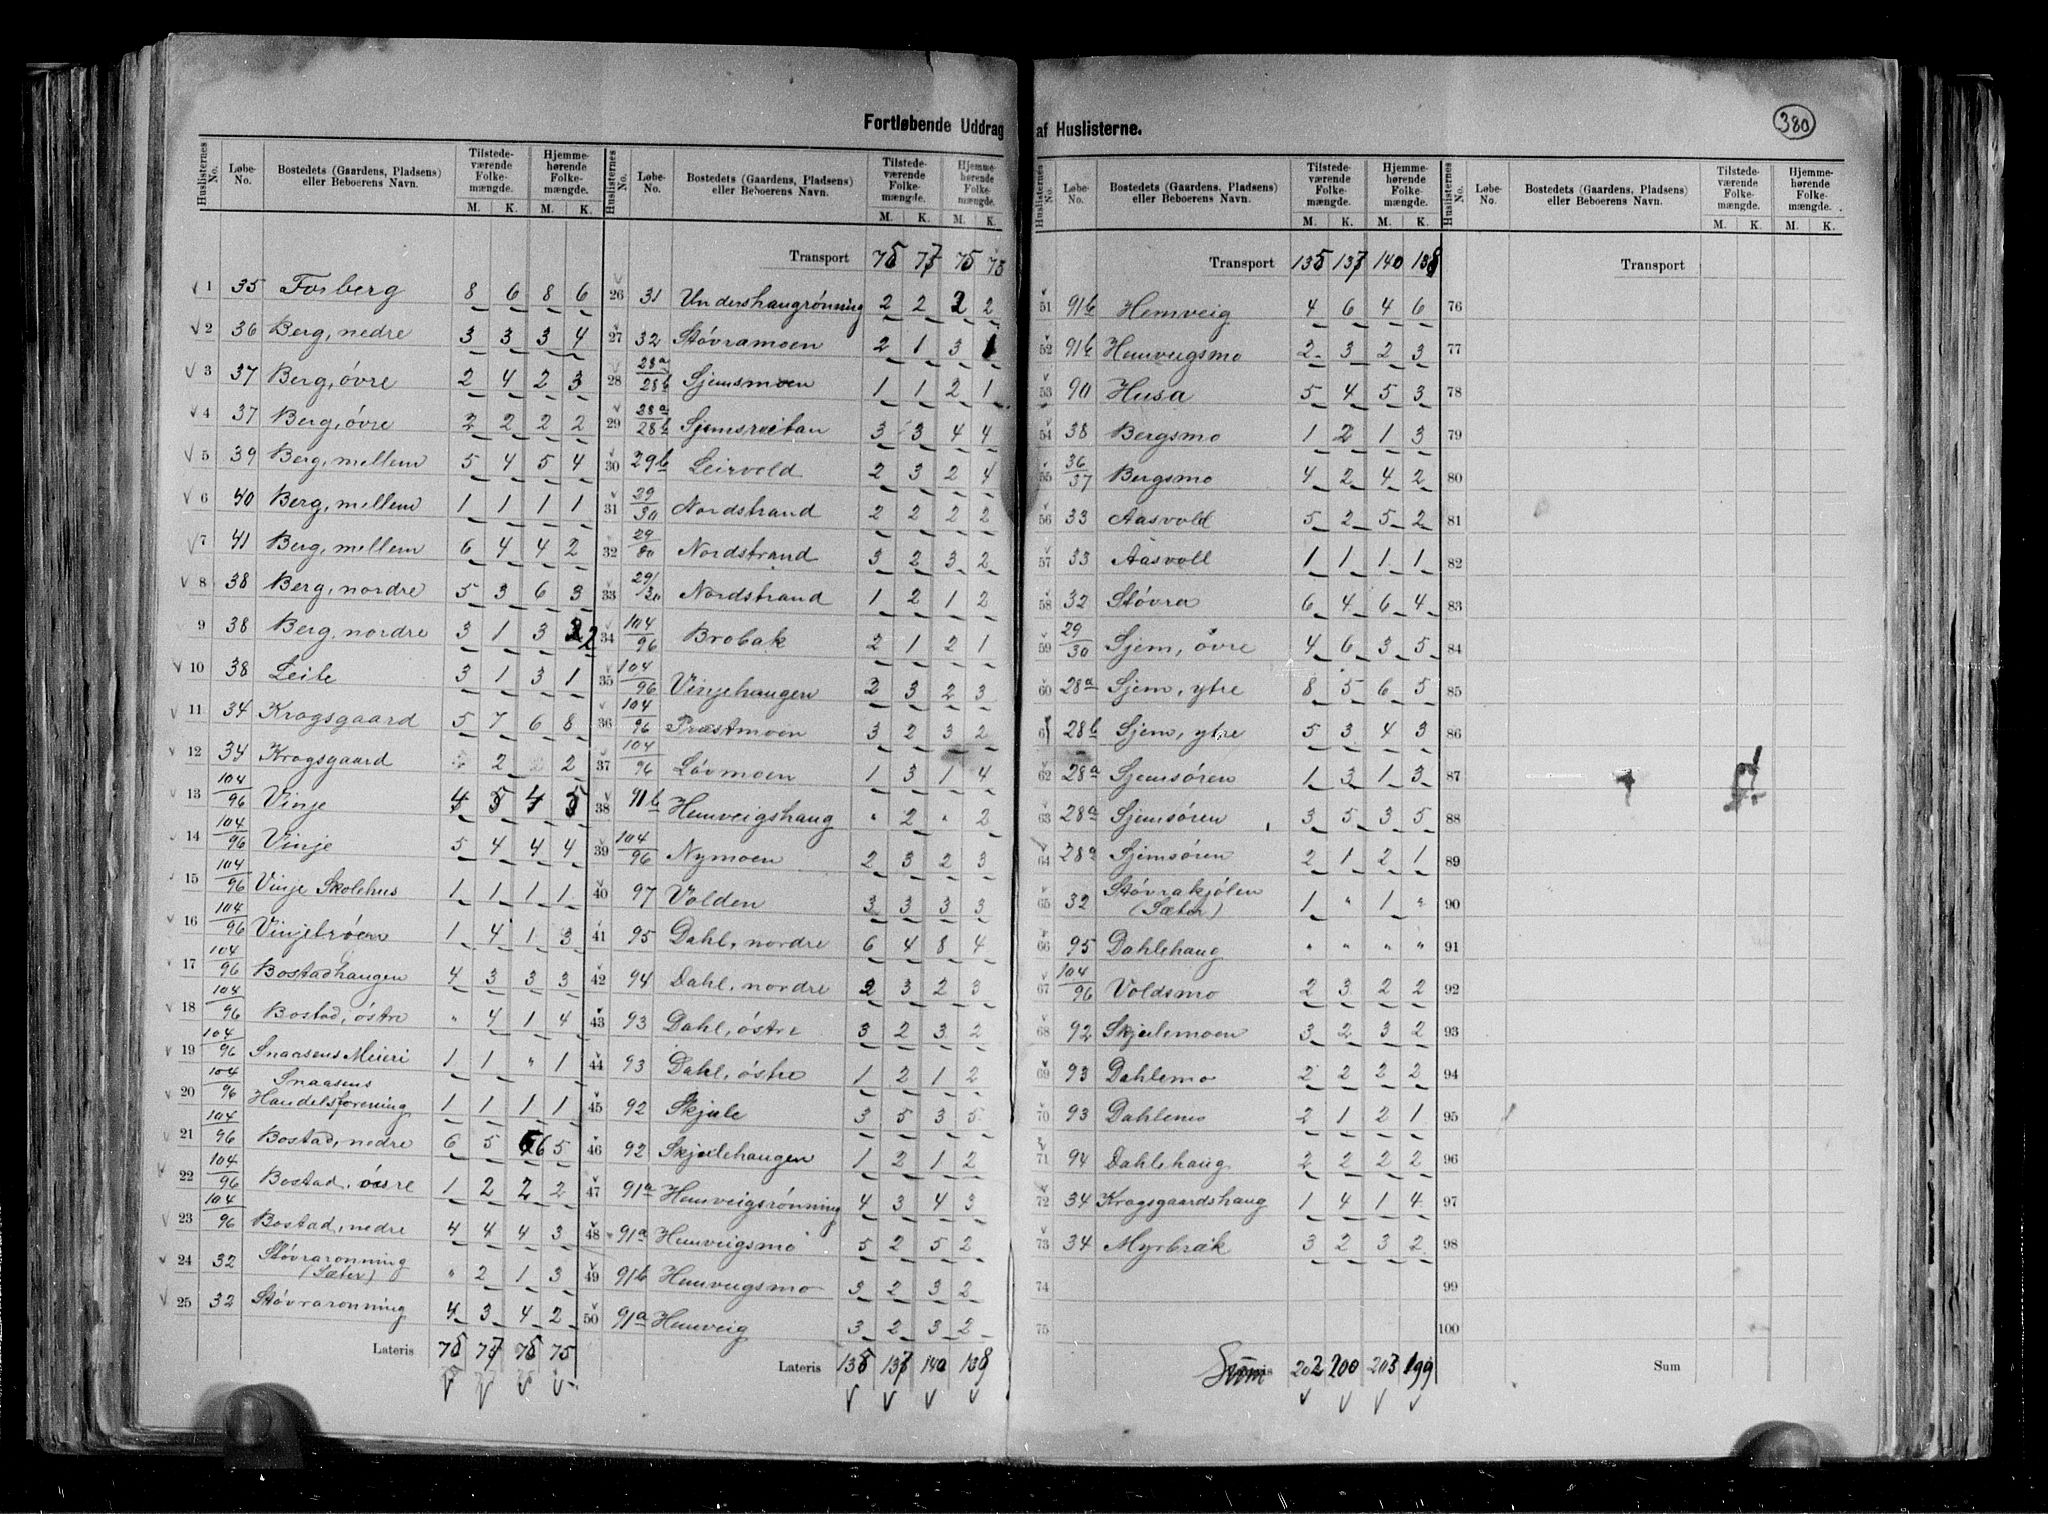 380
Fortløbende Uddrag af Huslisterne.
Huslisternes No. Løbe-No. Bostedets (Gaardens, Pladsens) eller Beboerens Navn. Tilstedeværende Folkemængde. Hjemmehørende Folkemængde. M. K. M. K.
1 35 Forberg 8 6 8 6
2 36 Berg, nedre 3 3 3 4
3 37 Berg, övre 2 4 2 3
4 37 Berg, övre 2 2 2 2
5 39 Berg, mellem 5 4 5 4
6 40 Berg, mellem 1 1 1 1
7 41 Berg, mellem 6 4 4 2
8 38 Berg, nordre 5 3 6 3
9 38 Berg, nordre 3 1 3 2
10 38 Leite 3 1 3 1
11 34 Krogsgaard 5 7 6 8
12 34 Krogsgaard 2 2
13 104/96 Vinje 4 5 4 5
14 104/96 Vinje 5 4 4 4
15 104/96 Vinje Skolehus 1 1 1 1
16 104/96 Vinjetröen 1 4 1 3
17 104/96 Bostadhaugen 4 3 3 3
18 104/96 Bostad, östre " 4 1 4
19 104/96 Snaasens Meieri 1 1 " 1
20 104/96 Snaasens Handelsforening 1 1 1 1
21 104/96 Bostad, nedre 6 5 6 5
22 104/96 Bostad, 1 2 2 2
23 104/96 Bostad, nedre 4 4 4 3
24 32 Stövraronning (Sæter) " 2 1 3
25 32 Stövraronning 4 3 4 2
Lateris 75 77 75 75
Huslisternes No. Løbe-No. Bostedets (Gaardens, Pladsens) eller Beboerens Navn. Tilstedeværende Folkemængde. Hjemmehørende Folkemængde. M. K. M. K.
Transport 75 77 75 75
26 31 Undershaugrönning 2 2 2 2
27 32 Stövramoen 2 1 3 1
28 28a/28b Sjemsmoen 1 1 2 1
29 28a/28b Sjemsroitan 3 3 4 4
30 29b Leirvold 2 3 2 4
31 29/30 Nordstrand 2 2 2 2
32 29/30 Nordstrand 3 2 3 2
33 29/30 Nordstrand 1 2 1 2
34 104/96 Brobak 2 1 2 1
35 104/96 Vinjehaugen 2 3 2 3
36 104/96 Præstmoen 3 2 3 2
37 104/96 Lövmoen 1 3 1 4
38 91b Hemveigshaug " 2 " 2
39 104/96 Nymoen 2 3 2 3
40 97 Volden 3 3 3 3
41 95 Dahl, nordre 6 4 8 4
42 94 Dahl, nordre 2 3 2 3
43 93 Dahl, östre 3 2 3 2
44 93 Dahl, östre 1 2 1 2
45 92 Skjule 3 5 3 5
46 92 Skjulehaugen 1 2 1 2
47 91a Hemveigsrönning 4 3 4 3
48 91a Hemveigsmo 5 2 5 2
49 91b Hemveigsmo 3 2 3 2
50 91a Hemveig 3 2 3 2
Lateris 135 137 140 138
Huslisternes No. Løbe-No. Bostedets (Gaardens, Pladsens) eller Beboerens Navn. Tilstedeværende Folkemængde. Hjemmehørende Folkemængde. M. K. M. K.
Transport 135 137 140 138
51 91b Hemveig 4 6 4 6
52 91b Hemveigsmo 2 3 2 3
53 90 Husa 5 4 5 3
54 38 Bergsmo 1 2 1 3
55 36/37 Bergsmo 4 2 4 2
56 33 Aasvold 5 2 5 2
57 33 Aasvoll 1 1 1 1
58 32 Stövra 6 4 6 4
59 29/30 Sjem, övre 4 6 3 5
60 28a Sjem, ytre 8 5 6 5
61 28b Sjem, ytre 5 3 4 3
62 28a Sjemsören 1 3 1 3
63 28a Sjemsören 3 5 3 5
64 28a Sjemsören 2 1 2 1
65 32 Stövrakjölen (Sæter) 1 " 1 "
66 95 Dahlehaug " " " "
67 104/96 Voldsmo 2 3 2 2
68 92 Skjulemoen 3 2 3 2
69 93 Dahlemo 2 2 2 2
70 93 Dahlemo 2 1 2 1
71 94 Dahlehaug 2 2 2 2
72 34 Krogsgaardshaug 1 4 1 4
73 34 Myrbræk 3 2 3 2
74
75
Sum 202 200 203 199
Huslisternes No. Løbe-No. Bostedets (Gaardens, Pladsens) eller Beboerens Navn. Tilstedeværende Folkemængde. Hjemmehørende Folkemængde. M. K. M. K.
Transport
76
77
78
79
80
81
82
83
84
85
86
87
88
89
90
91
92
93
94
95
96
97
98
99
100
Sum